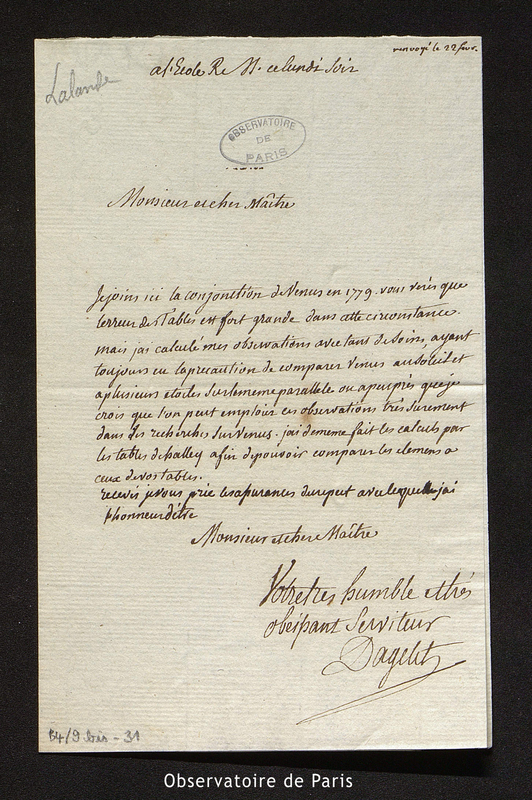 renvoyé le 22 fevr.
a l'Ecole R. M. ce lundi soir
Lalande
OBSERVATOIRE
DE
PARIS
Monsieur et cher Maître
Je joins ici la conjonction de Venus en 1779. vous verés que
l'erreur des Tables est fort grande dans cette circonstance.
mais j'ai calculé mes observations avec tant de soins, ayant
toujours eu la precaution de comparer venus au soleil et
a plusieurs etoiles sur le meme parallele ou a peu près que je
crois que l'on peut emploier ces observations très surement
dans des recherches sur venus. j'ai de meme fait les calculs par
les tables de halley afin de pouvoir comparer les elemens a
ceux de vos tables.
recevés je vous prie les assurances du respect avec lequel j'ai
l'honneur d'etre
Monsieur et cher Maître
Votre très humble et très
obeissant Serviteur
Dagelet
B4/9 bis - 31
Observatoire de Paris